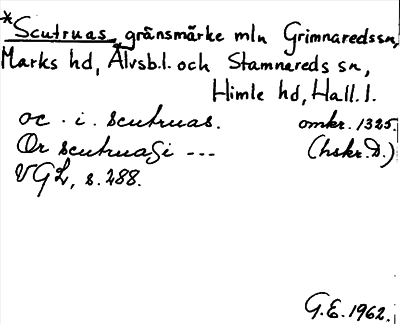 *Scutruas, gränsmärke mln Grimnaredssn,
Marks hd, Älvsb.l. och Stamnareds sn,
Himle hd, Hall.l.
oc . i . scutruas. omkr. 1325.
Or scutruasi --- (hskr. D.)
VGL, s. 288.
G.E. 1962.